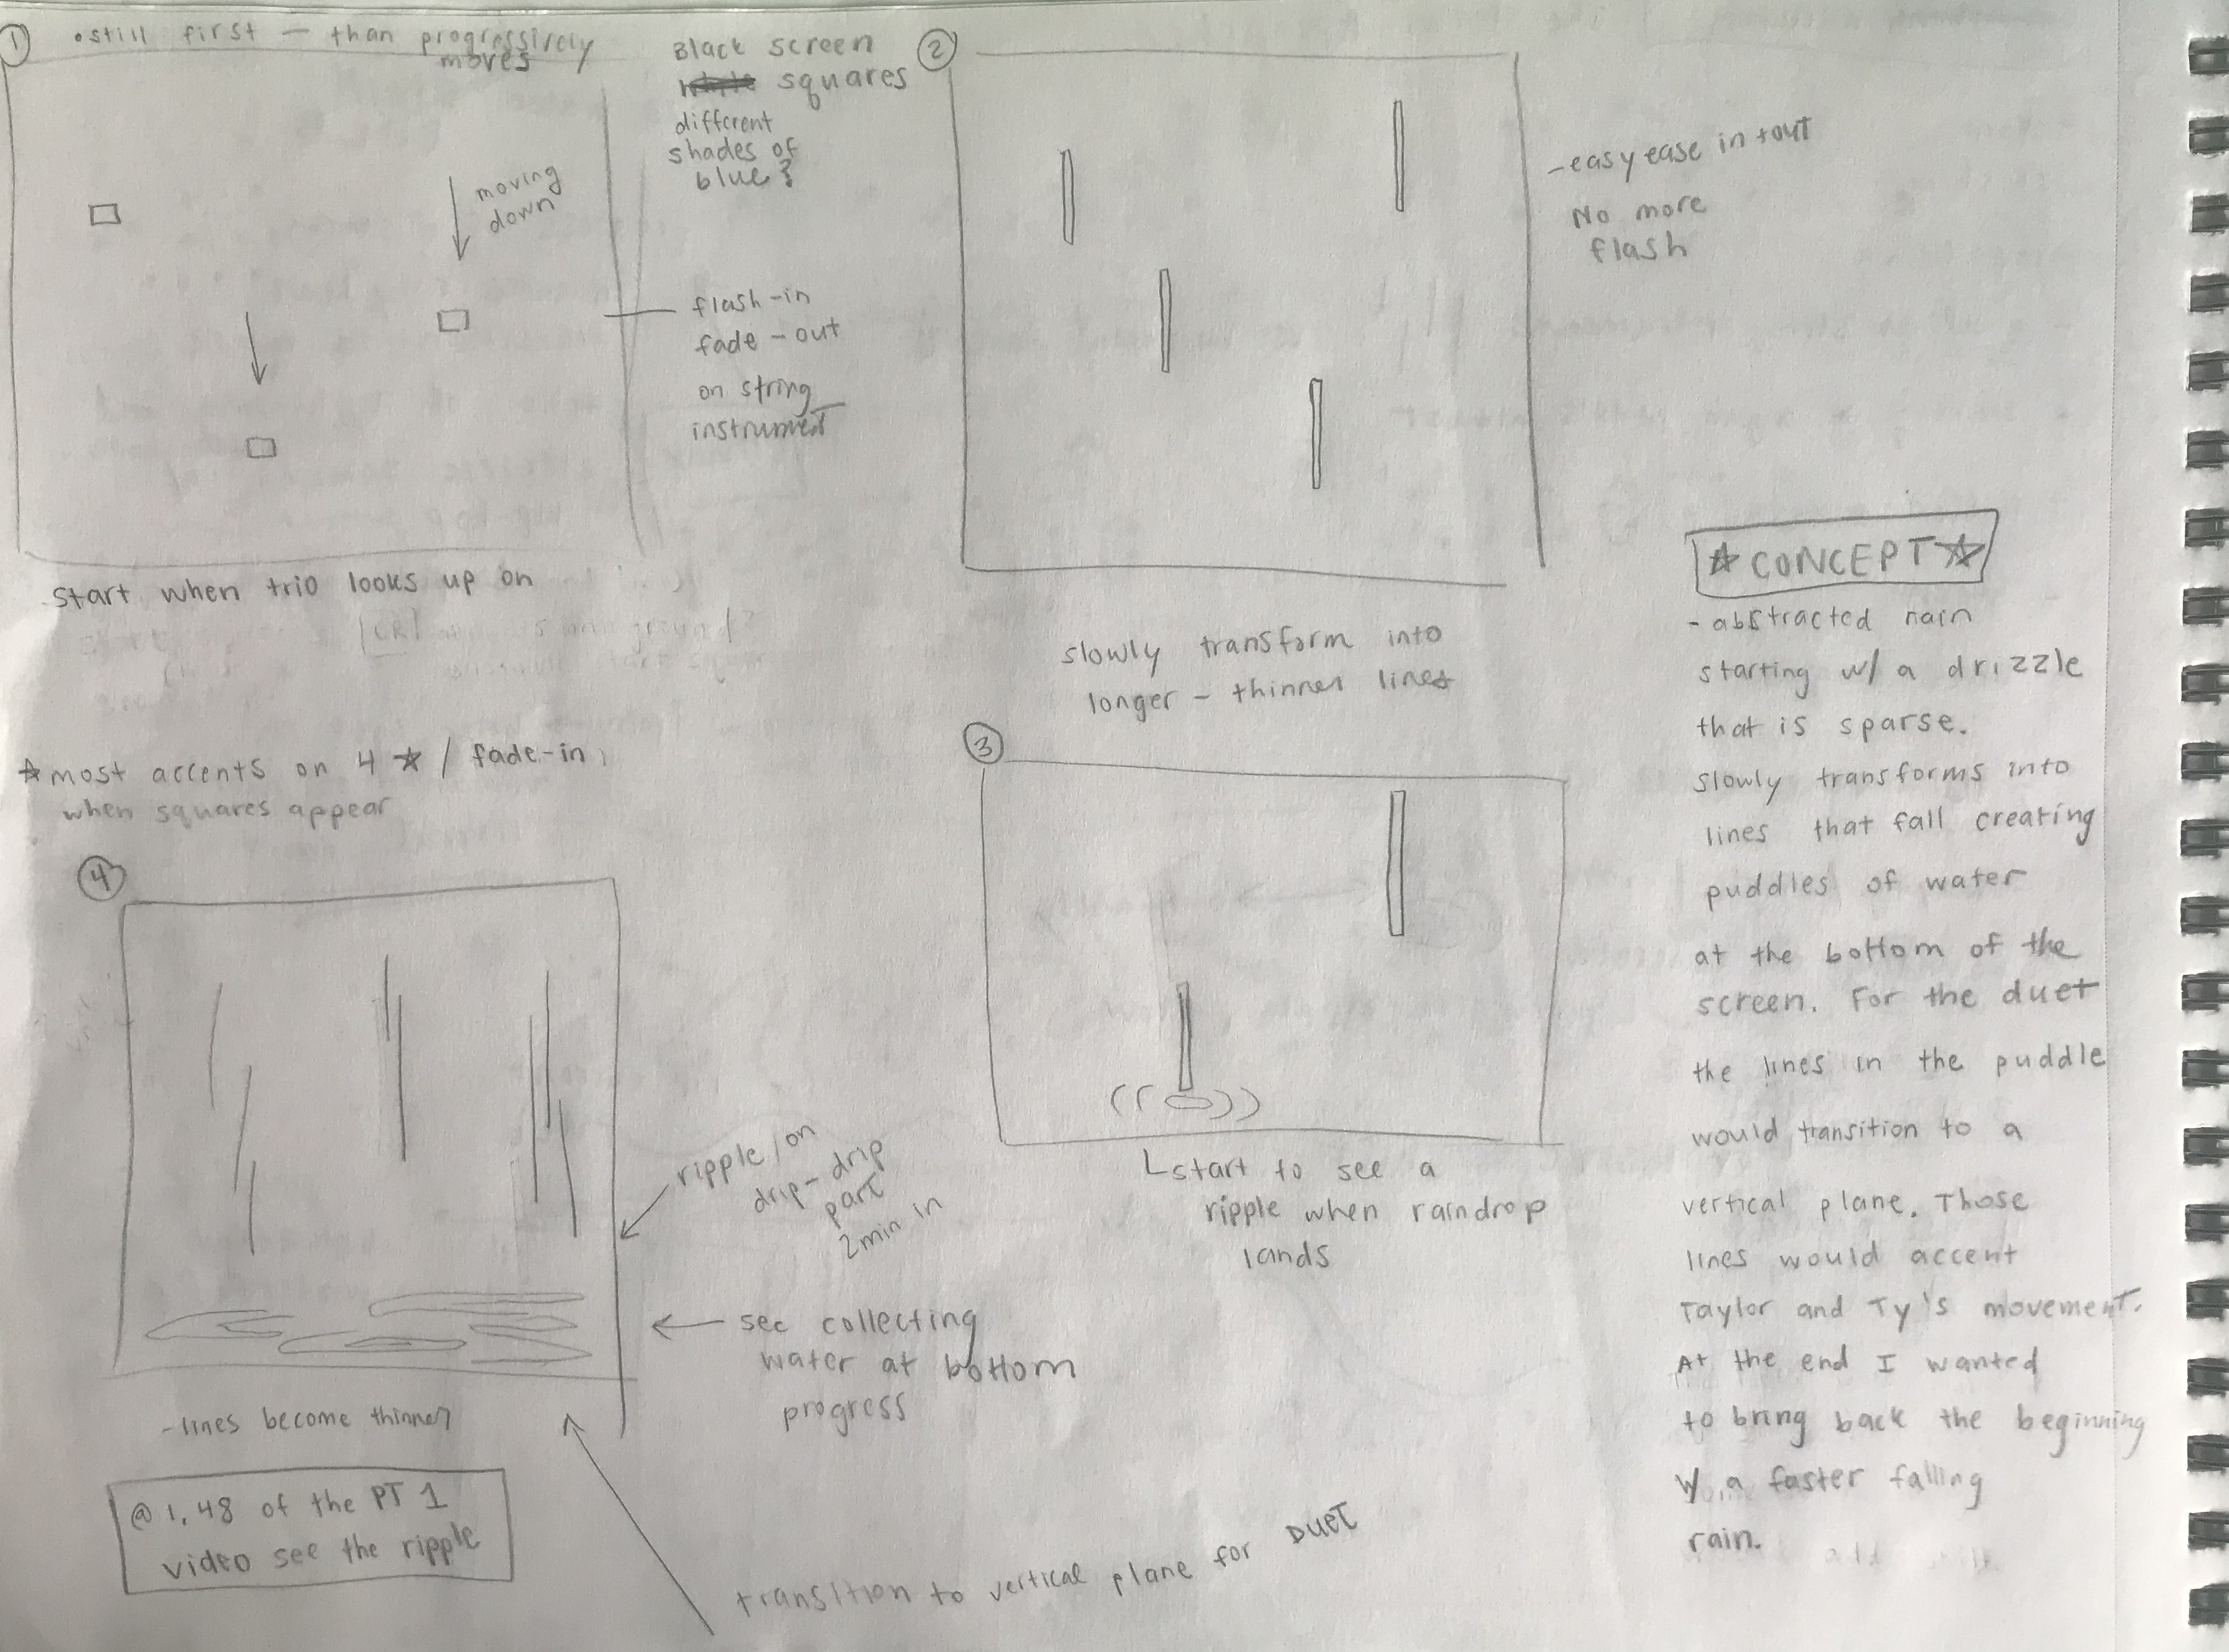 ① • still first — than progressively
moves
Black screen
squares
different
shades of
blue
moving
down
flash-in
fade-out
on string
instrument
start when trio looks up on
②
-easy ease in + out
No more
flash
slowly transform into
longer - thinner lines
☆ most accents on 4 ☆ / fade-in
when squares appear
③
Lstart to see a
ripple when raindrop
lands
④
ripple/on
drip-drip
part
2min in
← see collecting
water at bottom
progress
-lines become thinner
@ 1,48 of the PT 1
video see the ripple
transition to vertical plane for DUET
☆CONCEPT☆
- abstracted rain
starting w/ a drizzle
that is sparse.
slowly transforms into
lines that fall creating
puddles of water
at the bottom of the
screen. For the duet
the lines in the puddle
would transition to a
vertical plane. Those
lines would accent
Taylor and Ty's movement.
At the end I wanted
to bring back the beginning
w/ a faster falling
rain.